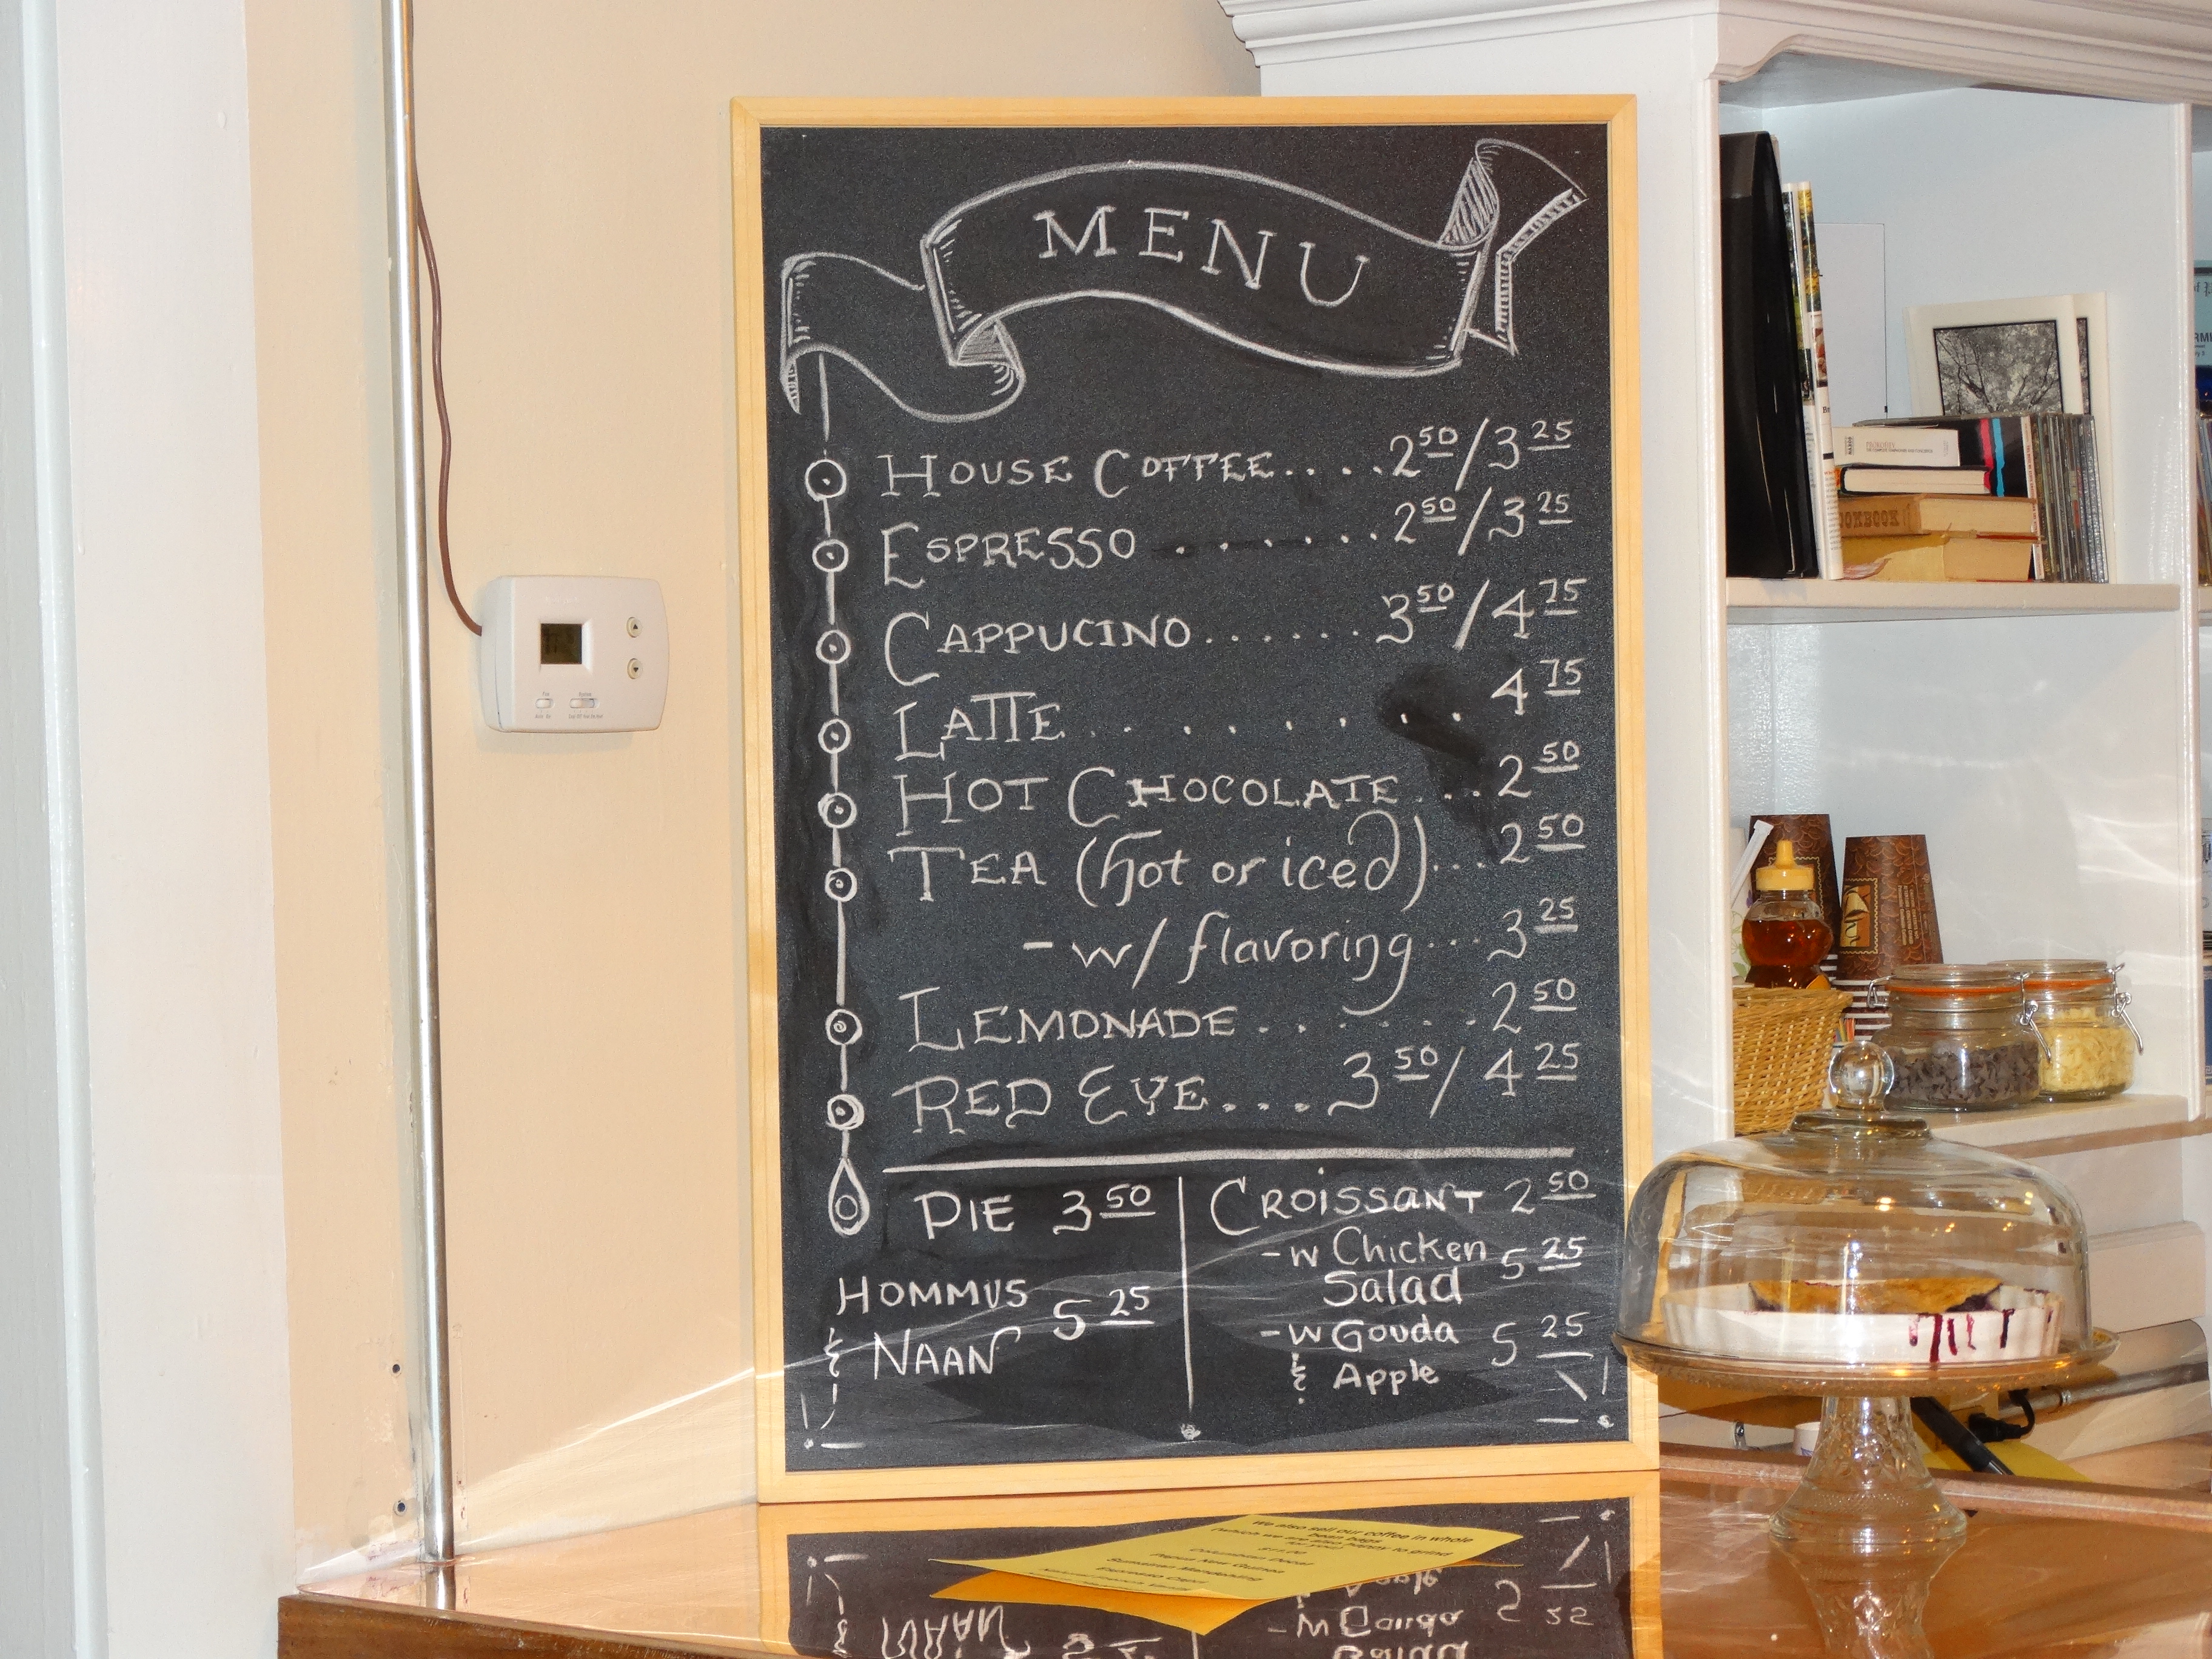 MENU
HOUSE COFFEE....2 50/3 25
ESPRESSO ......2 50/3 25
CAPPUCINO......3 50/4 75
LATTE....... 4 75
HOT CHOCOLATE...2 50
TEA (hot or iced)...2 50
- w/ flavoring...3 25
LEMONADE......2 50
RED EYE...3 50/4 25
PIE 3 50
HOMMUS
& NAAN 5 25
CROISSANT 2 50
- w Chicken
Salad 5 25
- w Gouda
& Apple 5 25
We also sell our coffee in whole
bean bags
COOKBOOK